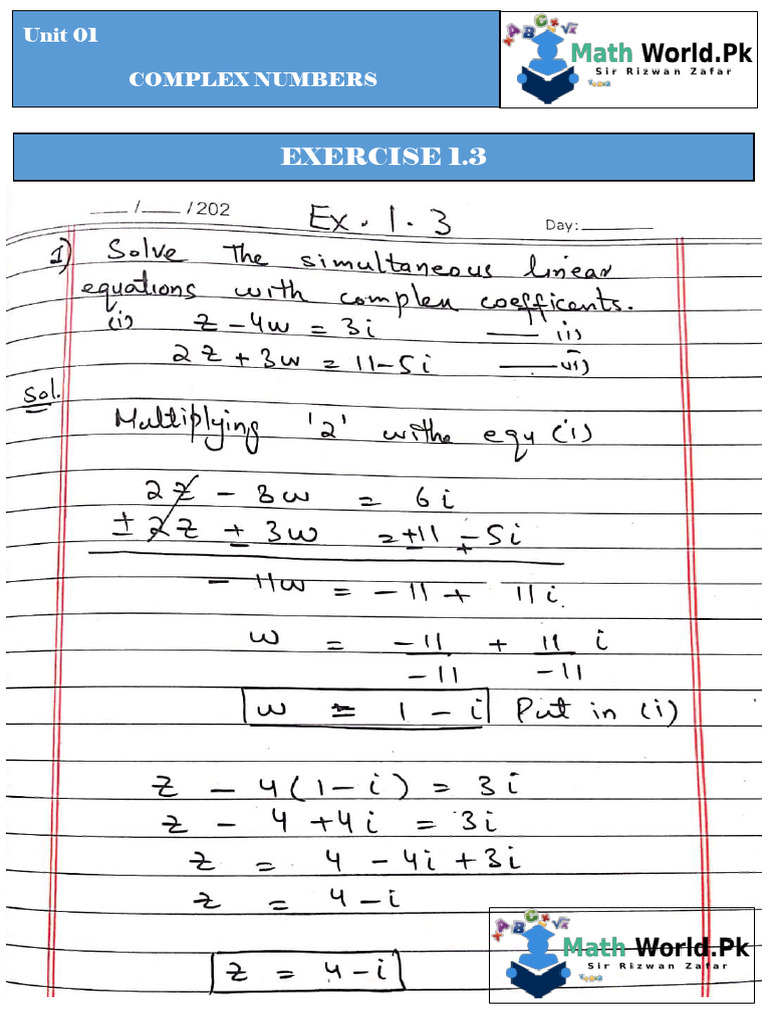 Unit 01
COMPLEX NUMBERS
Math World.Pk
Sir Rizwan Zafar
EXERCISE 1.3
__/__/202 Ex. 1. 3 Day:______
1) Solve the simultaneous linear
equations with complex coefficents.
(i) z - 4w = 3i —— (i)
2z + 3w = 11 - 5i —— (ii)
Sol.
Multiplying '2' withe equ (i)
2z - 8w = 6i
± 2z ± 3w = ±11 ∓ 5i
- 11w = -11 + 11i
w = -11/-11 + 11/-11 i
w = 1 - i Put in (i)
z - 4(1 - i) = 3i
z - 4 + 4i = 3i
z = 4 - 4i + 3i
z = 4 - i
z = 4 - i
Math World.Pk
Sir Rizwan Zafar